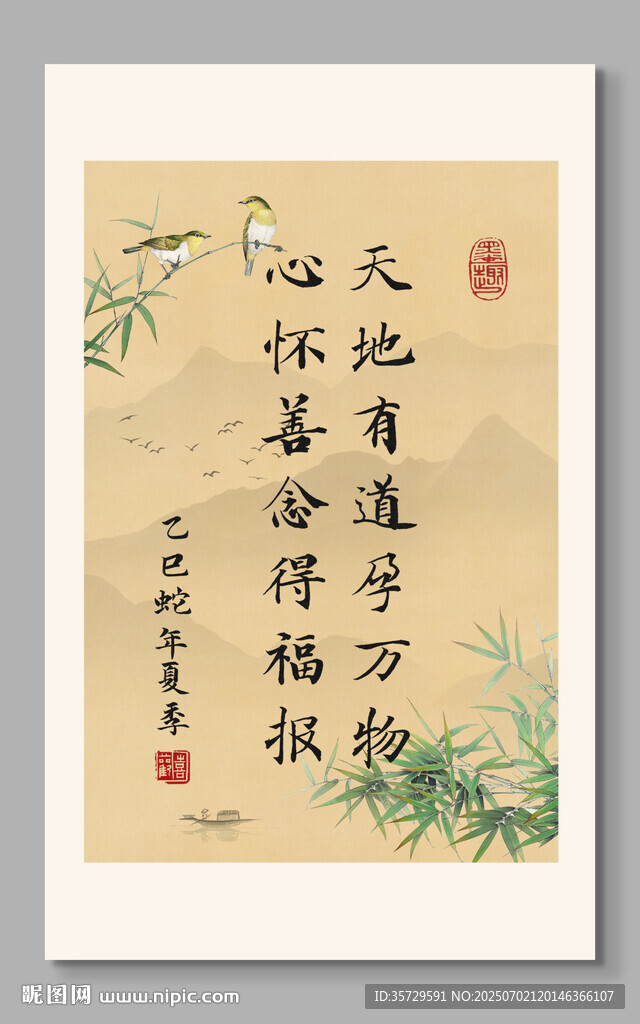 天地有道孕万物
心怀善念得福报
乙巳蛇年夏季
墨趣
昵图网 www.nipic.com
ID:35729591 NO:20250702120146366107